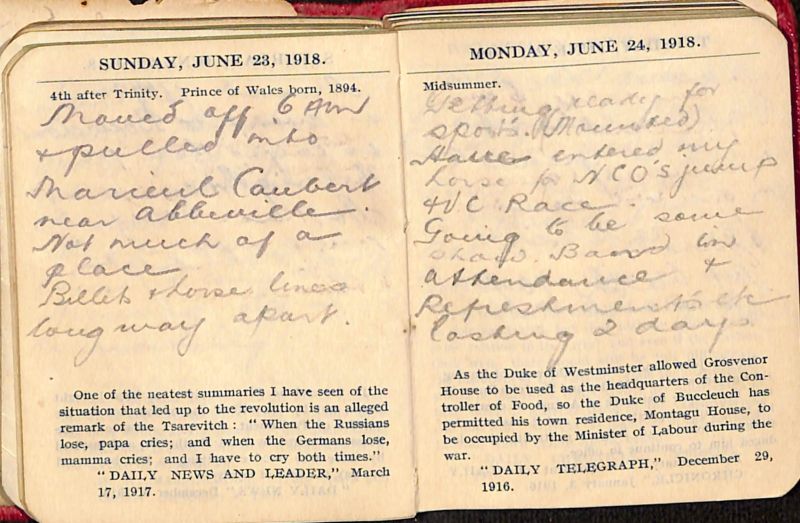 SUNDAY, JUNE 23, 1918.
4th after Trinity. Prince of Wales born, 1894.
Moved off 6 AM
& pulled into
Mareuil Caubert
near Abbeville.
Not much of a
place
Billets & horse lines
long way apart.
One of the neatest summaries I have seen of the
situation that led up to the revolution is an alleged
remark of the Tsarevitch: "When the Russians
lose, papa cries; and when the Germans lose,
mamma cries; and I have to cry both times."
"DAILY NEWS AND LEADER," March
17, 1917.
MONDAY, JUNE 24, 1918.
Midsummer.
Getting ready for
sports. (Mounted)
Have entered my
horse for NCO's jump
& VC Race.
Going to be some
show. Band in
attendance &
Refreshments etc
lasting 2 days.
As the Duke of Westminster allowed Grosvenor
House to be used as the headquarters of the Con-
troller of Food, so the Duke of Buccleuch has
permitted his town residence, Montagu House, to
be occupied by the Minister of Labour during the
war.
"DAILY TELEGRAPH," December 29,
1916.